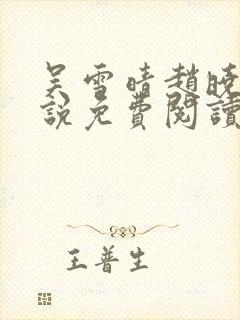 吴雪晴趙曉
說免費閱讀
王普生